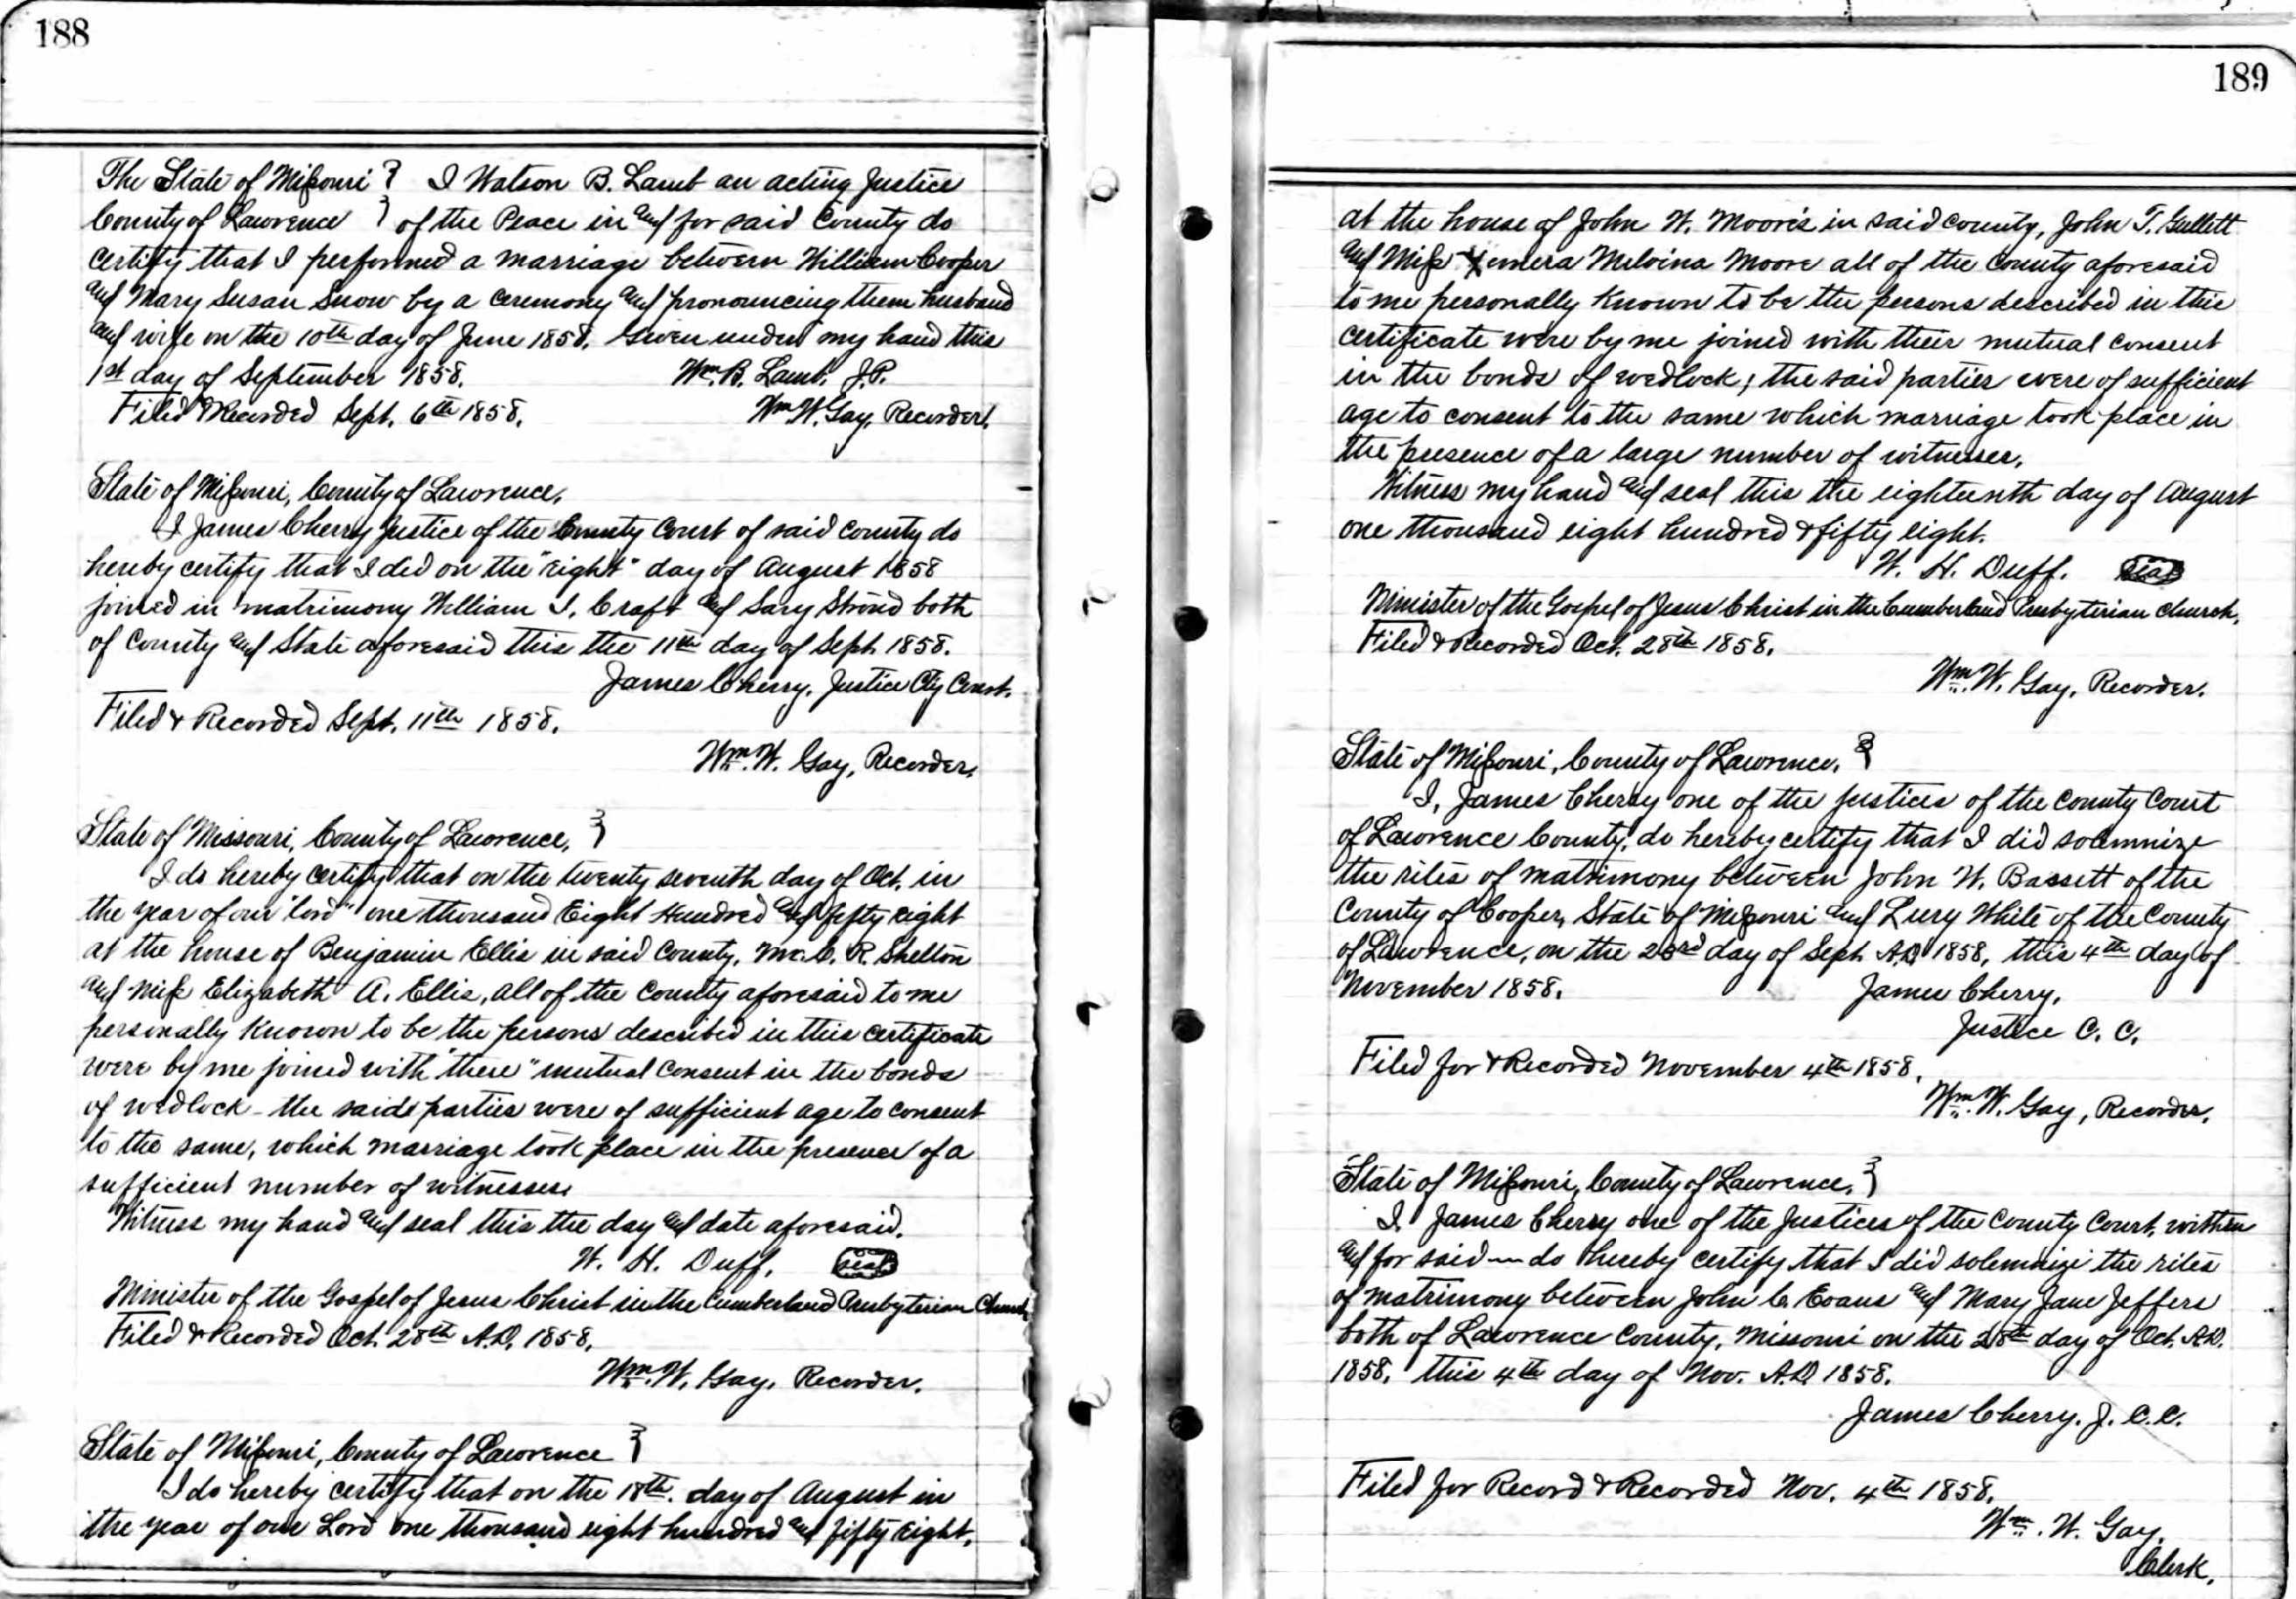 188
The State of Missouri } I Watson B. Lamb an acting Justice
County of Lawrence } of the Peace in and for said County do
certify that I performed a marriage between William Cooper
and Mary Susan Snow by a ceremony and pronouncing them husband
and wife on the 10th day of June 1858. Given under my hand this
1st day of September 1858. Wm. B. Lamb, J.P.
Filed & Recorded Sept. 6th 1858. Wm. W. Gay, Recorder.
State of Missouri, County of Lawrence,
I James Cherry Justice of the County Court of said county do
hereby certify that I did on the "eight" day of August 1858
joined in matrimony William I. Craft and Sary Strond both
of County and State aforesaid this the 11th day of Sept 1858.
James Cherry, Justice Cty Court.
Filed & Recorded Sept. 11th 1858.
Wm. W. Gay, Recorder.
State of Missouri, County of Lawrence, }
I do hereby certify that on the twenty seventh day of Oct. in
the year of our "lord" one thousand Eight Hundred and fifty eight
at the house of Benjamin Ellis in said County, Mr. C. R. Shelton
and Miss Elizabeth A. Ellis, all of the County aforesaid to me
personally known to be the persons described in this certificate
were by me joined with "there" mutual consent in the bonds
of wedlock - the saids parties were of sufficient age to consent
to the same, which marriage took place in the presence of a
sufficient number of witnesses.
Witness my hand and seal this the day and date aforesaid.
W. H. Duff. seal
Minister of the Gospel of Jesus Christ in the Cumberland Presbyterian Church
Filed & Recorded Oct. 28th A.D. 1858.
Wm. W. Gay, Recorder.
State of Missouri, County of Lawrence }
I do hereby certify that on the 18th. day of August in
the year of our Lord one thousand eight hundred and fifty eight,
189
at the house of John W. Moore's in said county, John T. Gullett
and Miss Melvina Moore all of the County aforesaid
to me personally known to be the persons described in this
certificate were by me joined with their mutual consent
in the bonds of wedlock; the said parties were of sufficient
age to consent to the same which marriage took place in
the presence of a large number of witnesses.
Witness my hand and seal this the eighteenth day of August
one thousand eight hundred & fifty eight.
W. H. Duff. seal
Minister of the Gospel of Jesus Christ in the Cumberland Presbyterian Church.
Filed & Recorded Oct. 28th 1858.
Wm. W. Gay, Recorder.
State of Missouri, County of Lawrence, }
I, James Cherry one of the Justices of the County Court
of Lawrence County, do hereby certify that I did solemnize
the rites of matrimony between John W. Bassett of the
County of Cooper, State of Missouri and Lury White of the County
of Lawrence, on the 23rd day of Sept A.D. 1858, this 4th day of
November 1858. James Cherry,
Justice C. C.
Filed for & Recorded November 4th 1858.
Wm. W. Gay, Recorder.
State of Missouri, County of Lawrence, }
I, James Cherry one of the Justices of the County Court, within
and for said do hereby certify that I did solemnize the rites
of matrimony between John C. Evans and Mary Jane Jeffers
both of Lawrence County, Missouri on the 28th day of Oct. A.D.
1858, this 4th day of Nov. A.D. 1858.
James Cherry, J. C.C.
Filed for Record & Recorded Nov. 4th 1858.
Wm. W. Gay,
Clerk.